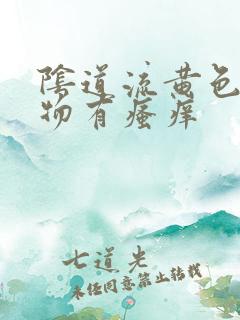 陰道流黄色
物有瘙痒
七道先
未经同意禁止转载